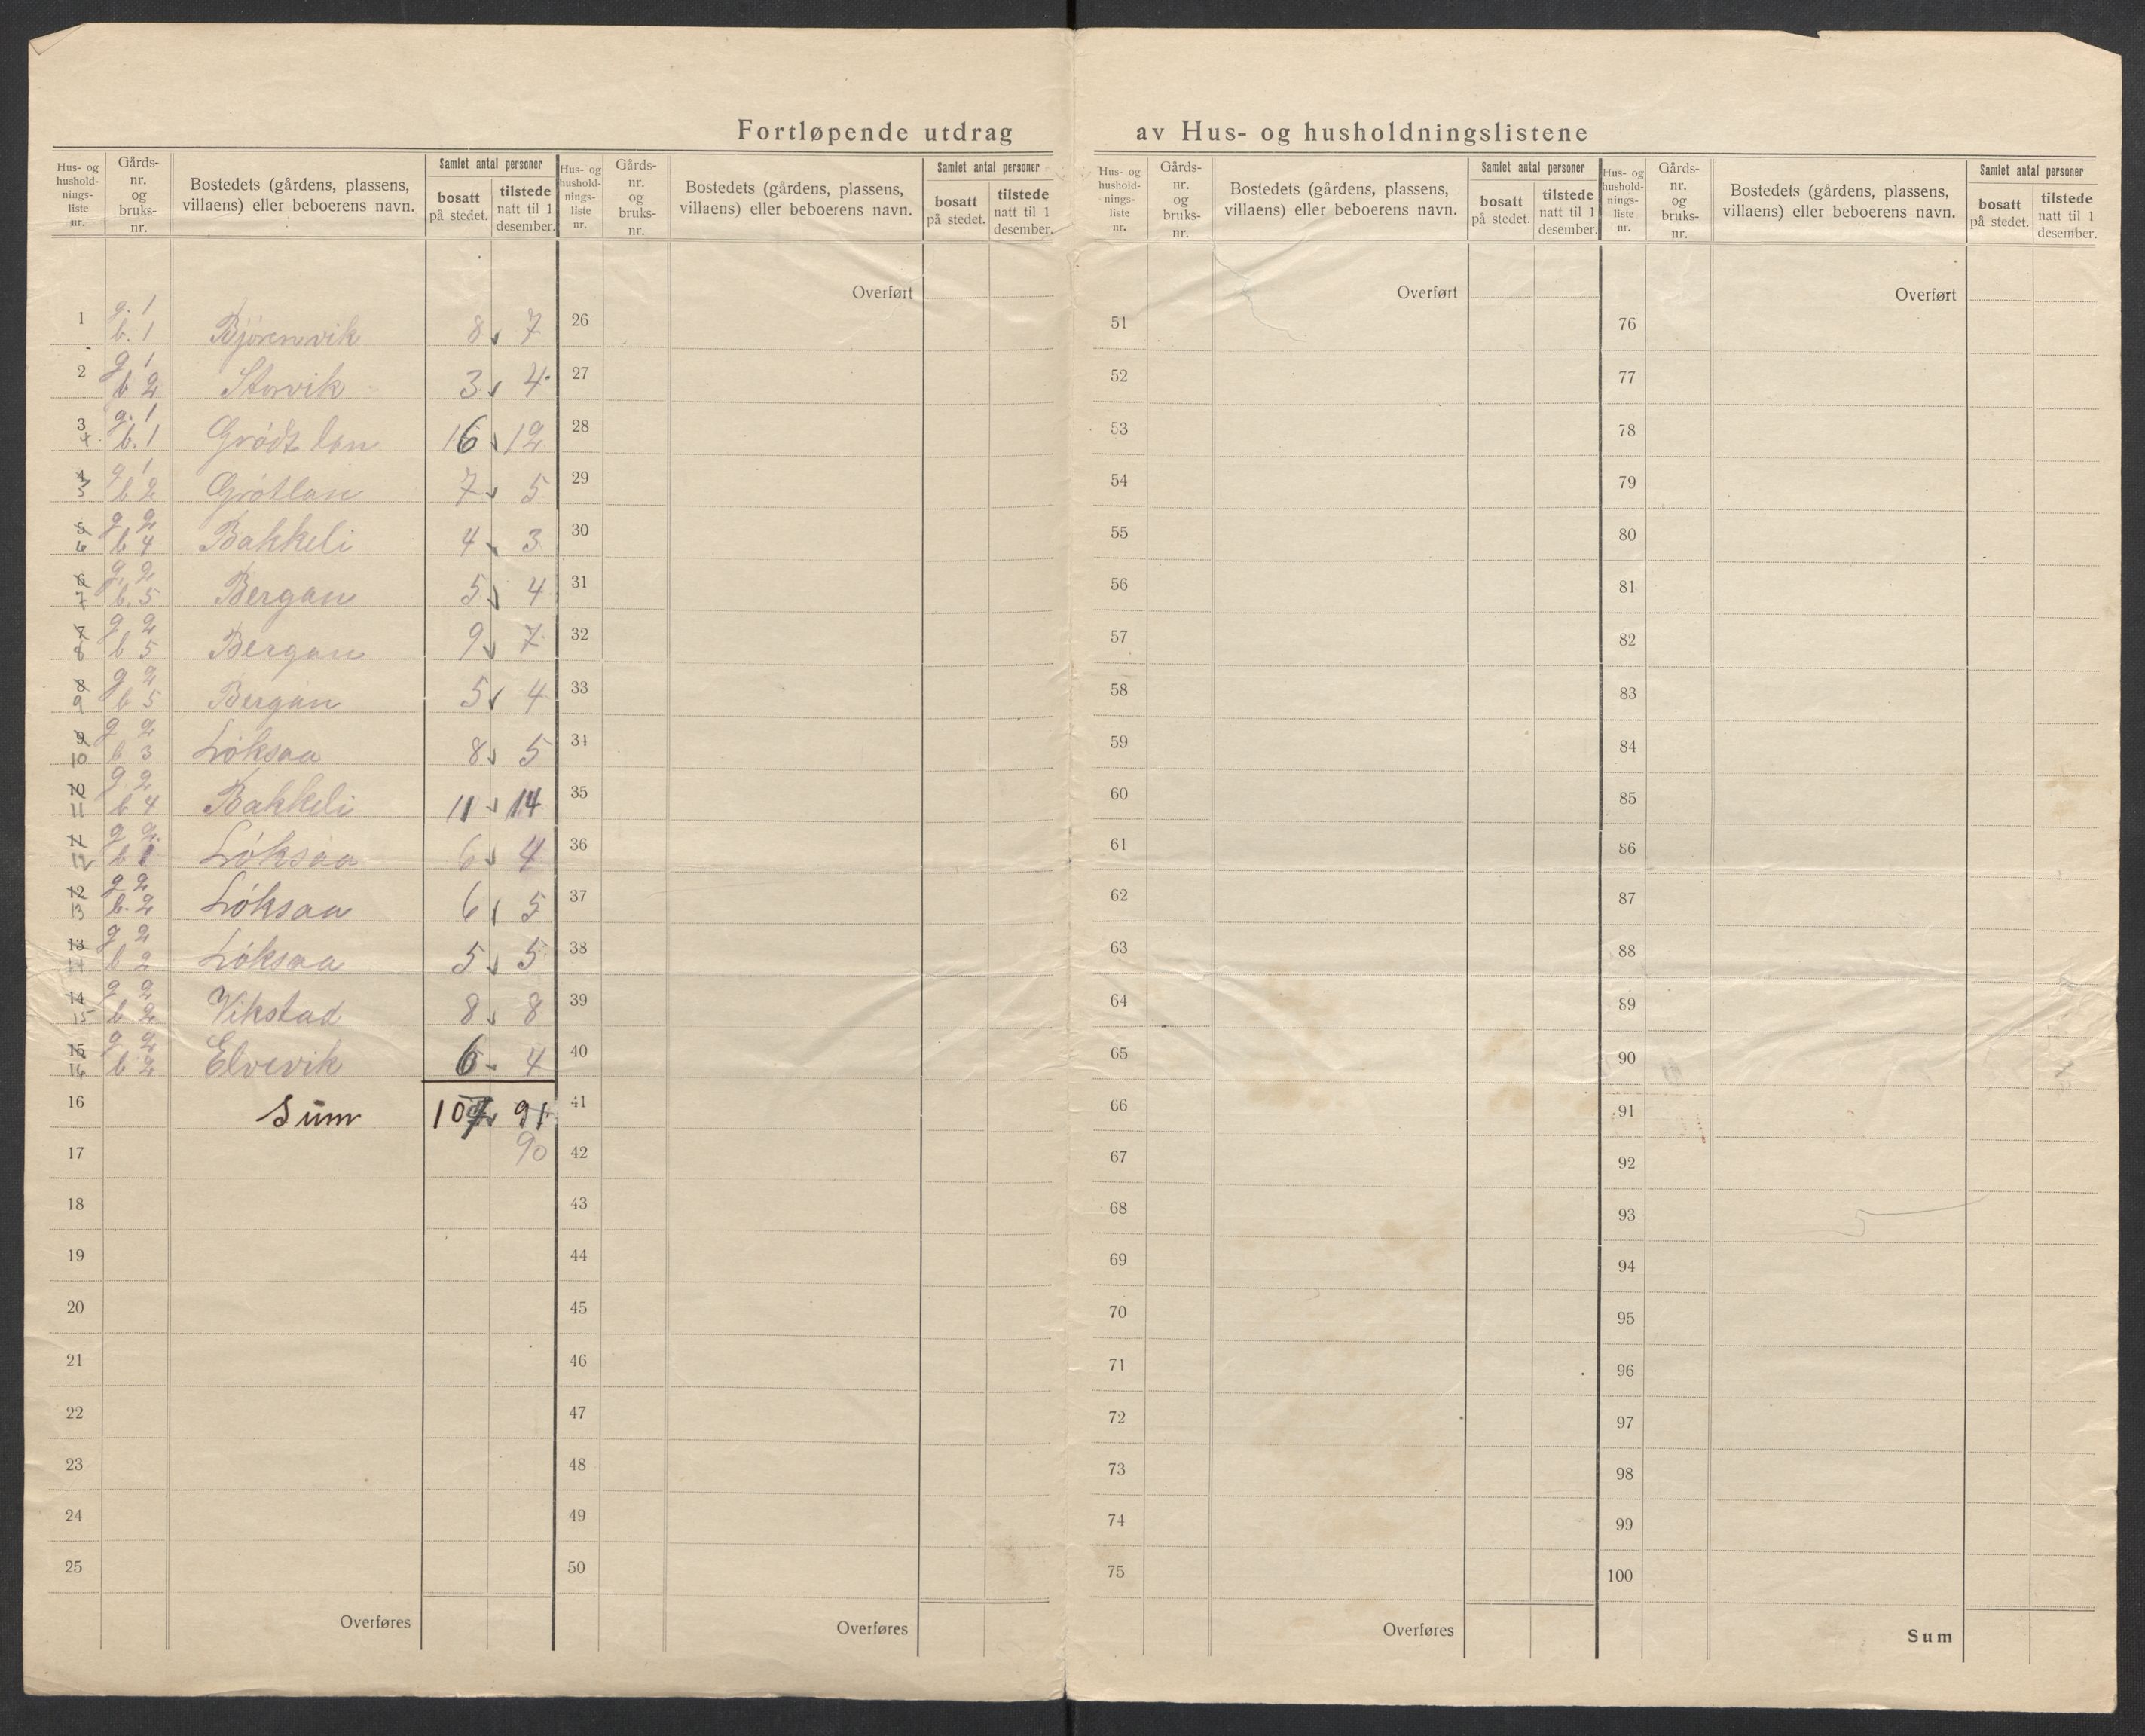 Fortløpende utdrag av Hus- og husholdningslistene
Hus- og hushold-nings-liste nr. | Gårds-nr. og bruks-nr. | Bostedets (gårdens, plassens, villaens) eller beboerens navn. | Samlet antal personer | bosatt på stedet. | tilstede natt til 1 desember.
1 | g. 1 b. 1 | Bjørenvik | 8 | 7
2 | g 1 b 2 | Storvik | 3 | 4
3 4 | g. 1 b. 1 | Grødt lan | 16 | 12
4 5 | g 1 b 2 | Grøtlan | 7 | 5
5 6 | g 2 b 4 | Bakkeli | 4 | 3
6 7 | g. 2 b. 5 | Bergan | 5 | 4
7 8 | g 2 b 5 | Bergan | 9 | 7
8 9 | g 2 b 5 | Bergan | 5 | 4
9 10 | g 2 b 3 | Løksaa | 8 | 5
10 11 | g. 2 b 4 | Bakkeli | 11 | 14
11 12 | g 2 b 1 | Løksaa | 6 | 4
12 13 | g 2 b. 2 | Løksaa | 6 | 5
13 14 | g 2 b 2 | Løksaa | 5 | 5
14 15 | g 2 b 2 | Vikstad | 8 | 8
15 16 | g 2 b 2 | Elvevik | 6 | 4
16 | Sum | 107 | 91
17 | 90
18
19
20
21
22
23
24
25
Overføres
Hus- og hushold-nings-liste nr. | Gårds-nr. og bruks-nr. | Bostedets (gårdens, plassens, villaens) eller beboerens navn. | Samlet antal personer | bosatt på stedet. | tilstede natt til 1 desember.
Overført
26
27
28
29
30
31
32
33
34
35
36
37
38
39
40
41
42
43
44
45
46
47
48
49
50
Overføres
Hus- og hushold-nings-liste nr. | Gårds-nr. og bruks-nr. | Bostedets (gårdens, plassens, villaens) eller beboerens navn. | Samlet antal personer | bosatt på stedet. | tilstede natt til 1 desember.
Overført
51
52
53
54
55
56
57
58
59
60
61
62
63
64
65
66
67
68
69
70
71
72
73
74
75
Overføres
Hus- og hushold-nings-liste nr. | Gårds-nr. og bruks-nr. | Bostedets (gårdens, plassens, villaens) eller beboerens navn. | Samlet antal personer | bosatt på stedet. | tilstede natt til 1 desember.
Overført
76
77
78
79
80
81
82
83
84
85
86
87
88
89
90
91
92
93
94
95
96
97
98
99
100
Sum